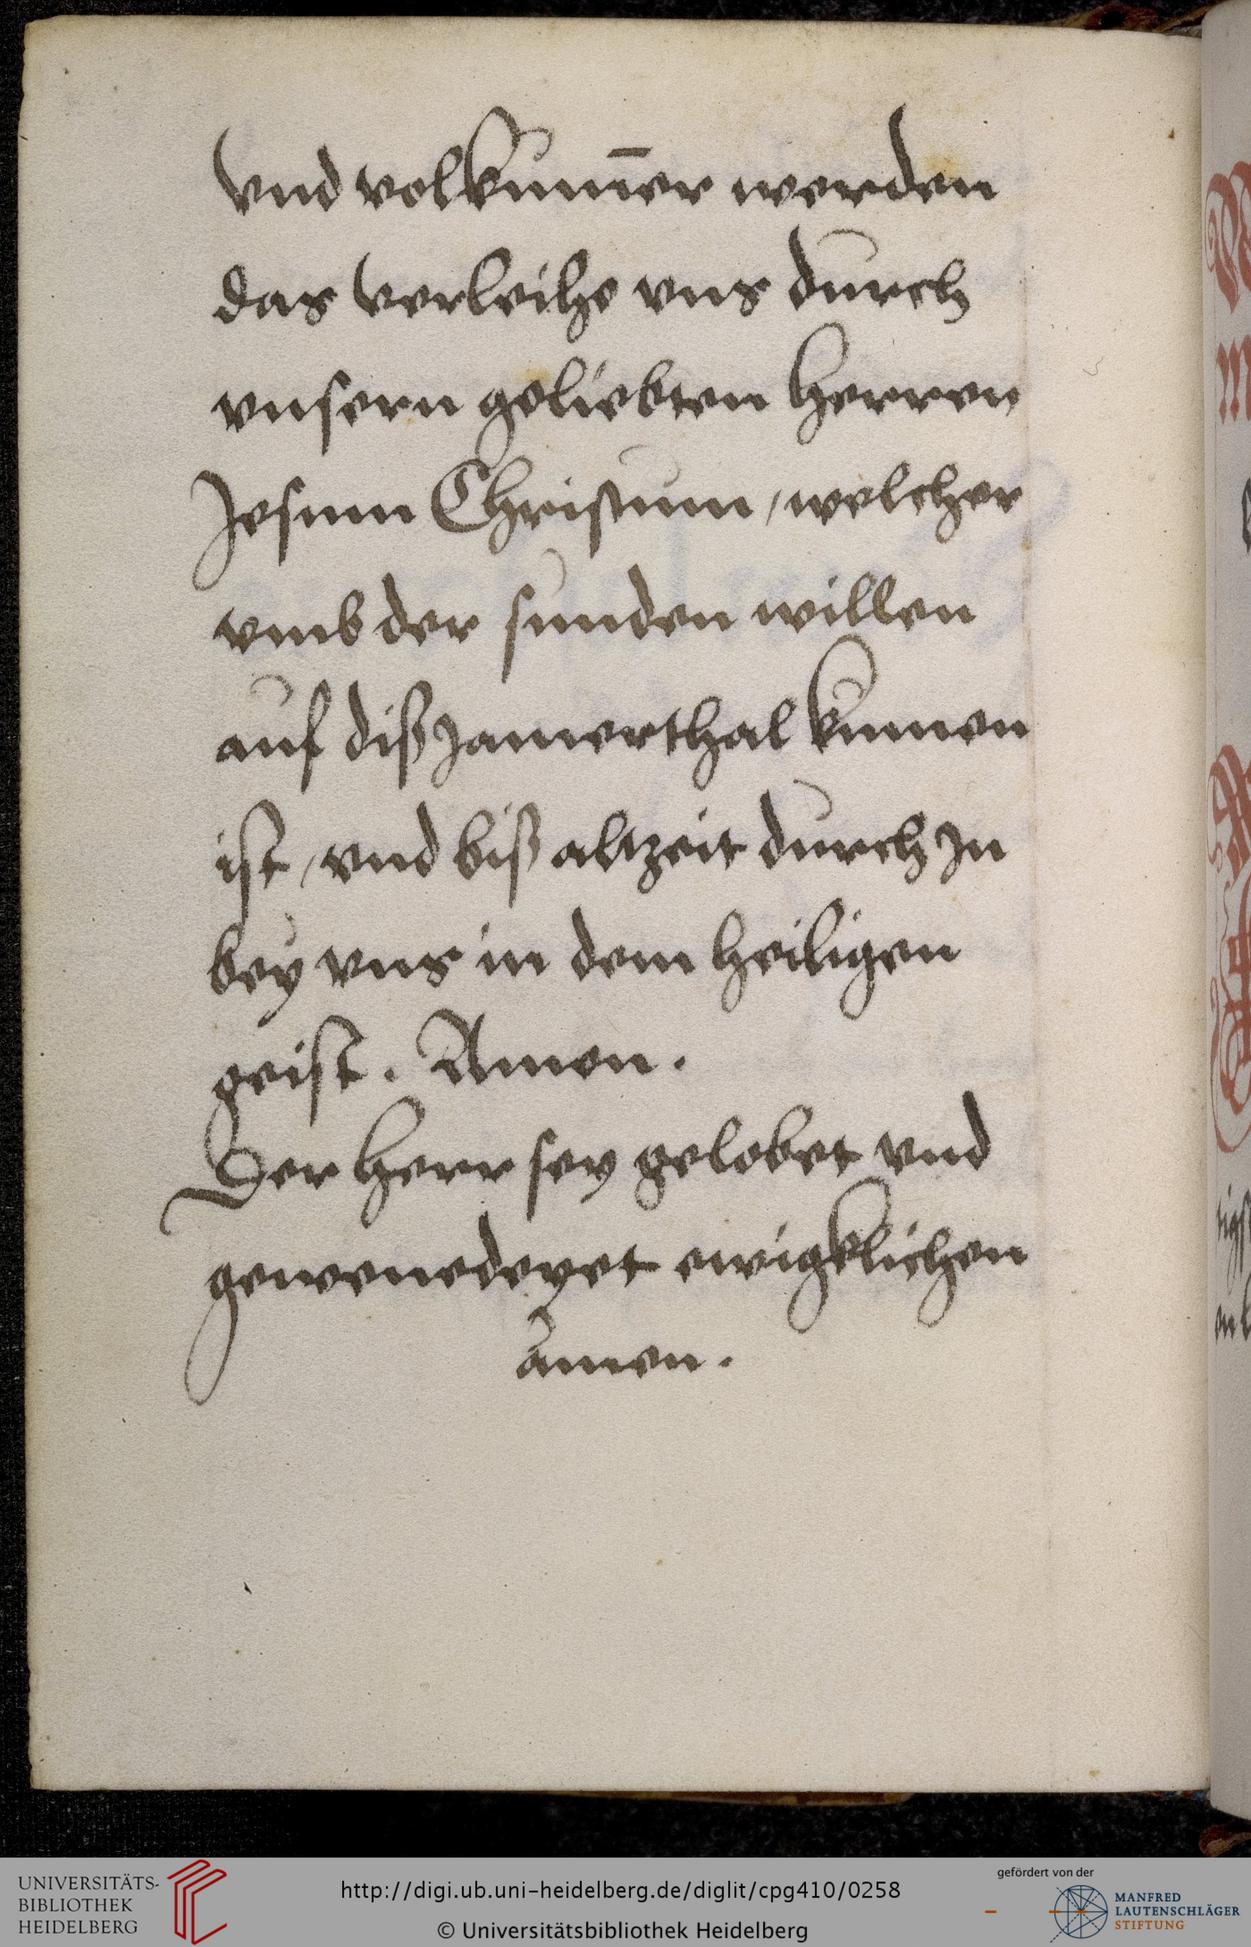 Vnd volkum̄er werden
das Verleihe vns durch
vnsern geliebten Herren
Jesum Christum / welcher
vmb der sunden willen
auf diß Jamerthal kumen
ist / vnd biß altzeit durch In
bey vns in dem heiligen
geist. Amen.
Der Herr sey gelobet vnd
gewenedeyet ewigklichen
amen.
UNIVERSITÄTS-
BIBLIOTHEK
HEIDELBERG
http://digi.ub.uni-heidelberg.de/diglit/cpg410/0258
© Universitätsbibliothek Heidelberg
gefördert von der
MANFRED
LAUTENSCHLÄGER
STIFTUNG